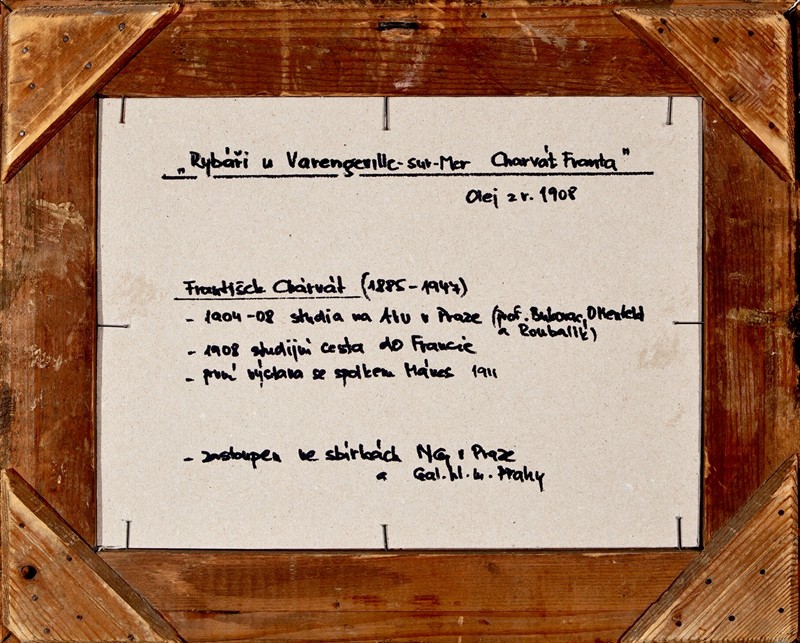 „Rybáři u Varengeville-sur-Mer Charvát Franta"
Olej z r. 1908
František Charvát (1885-1947)
- 1904-08 studia na AVU v Praze (prof. Bukovac, Ottenfeld
a Roubalík)
- 1908 studijní cesta do Francie
- první výstava se spolkem Mánes 1911
- zastoupen ve sbírkách NG v Praze
a Gal. hl. m. Prahy